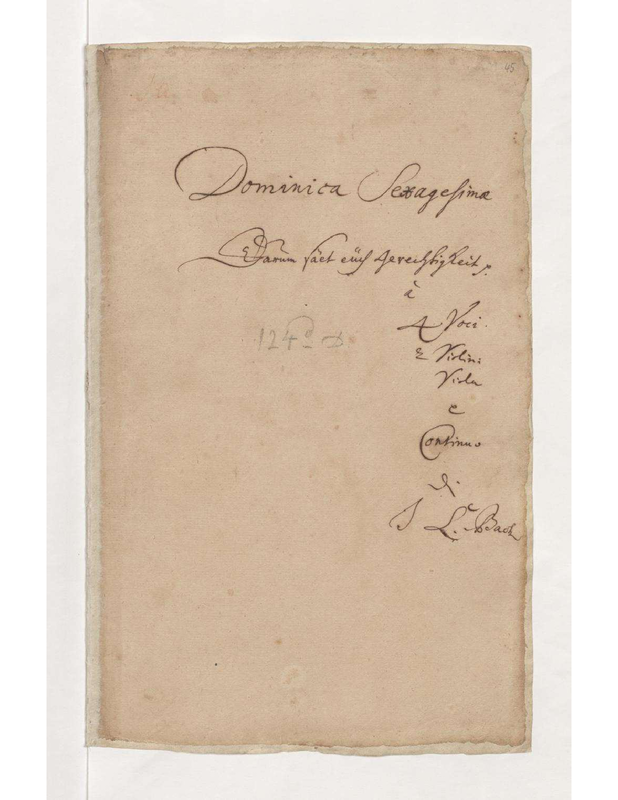 45
Dominica Sexagesimæ
Darum säet eüch Gerechtigkeit
à
4 Voci.
2 Violini
Viola
e
Continuo
di
J L. Bach